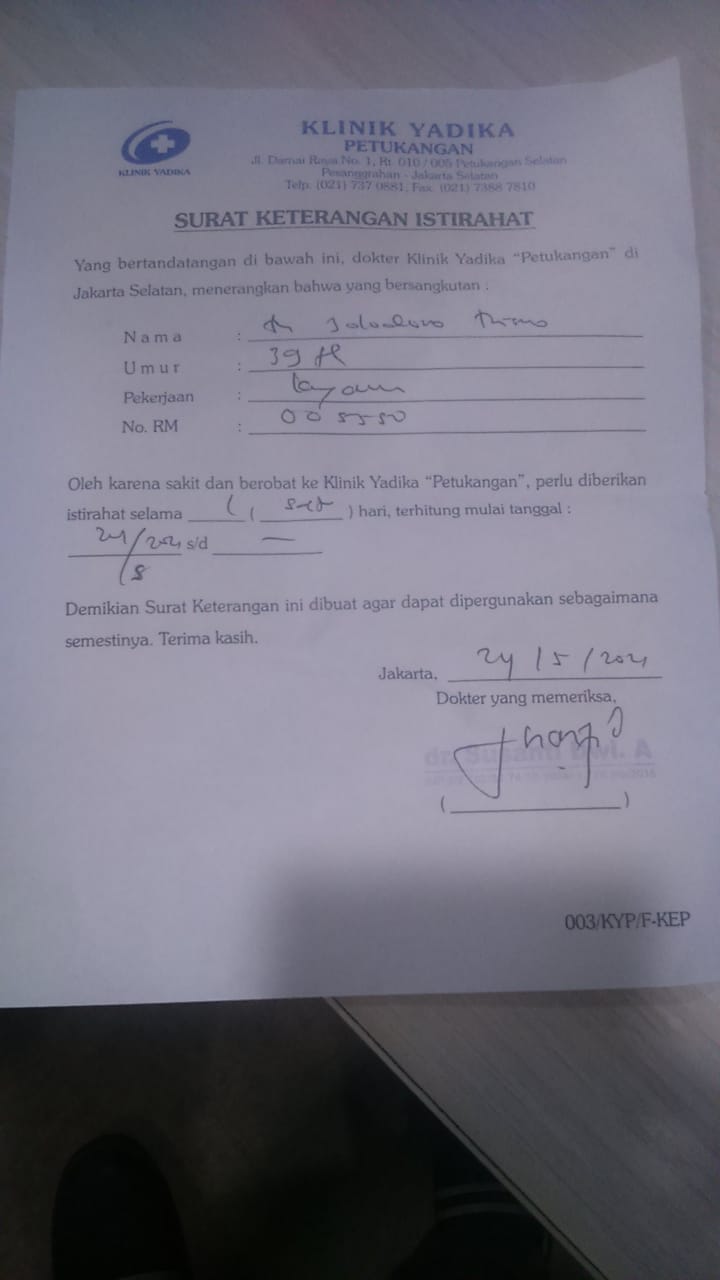 KLINIK YADIKA
KLINIK YADIKA
PETUKANGAN
Jl. Damai Raya No. 1, Rt. 010 / 005 Petukangan Selatan
Pesanggrahan - Jakarta Selatan
Telp. (021) 737 0881, Fax. (021) 7388 7810
SURAT KETERANGAN ISTIRAHAT
Yang bertandatangan di bawah ini, dokter Klinik Yadika “Petukangan” di
Jakarta Selatan, menerangkan bahwa yang bersangkutan :
Nama :
Umur : 39 th
Pekerjaan :
No. RM : 005550
Oleh karena sakit dan berobat ke Klinik Yadika “Petukangan”, perlu diberikan
istirahat selama ( ) hari, terhitung mulai tanggal :
24/2021 s/d —
/5
Demikian Surat Keterangan ini dibuat agar dapat dipergunakan sebagaimana
semestinya. Terima kasih.
Jakarta, 24 / 5 / 2021
Dokter yang memeriksa,
dr. Susanti Dwi. A
( )
003/KYP/F-KEP